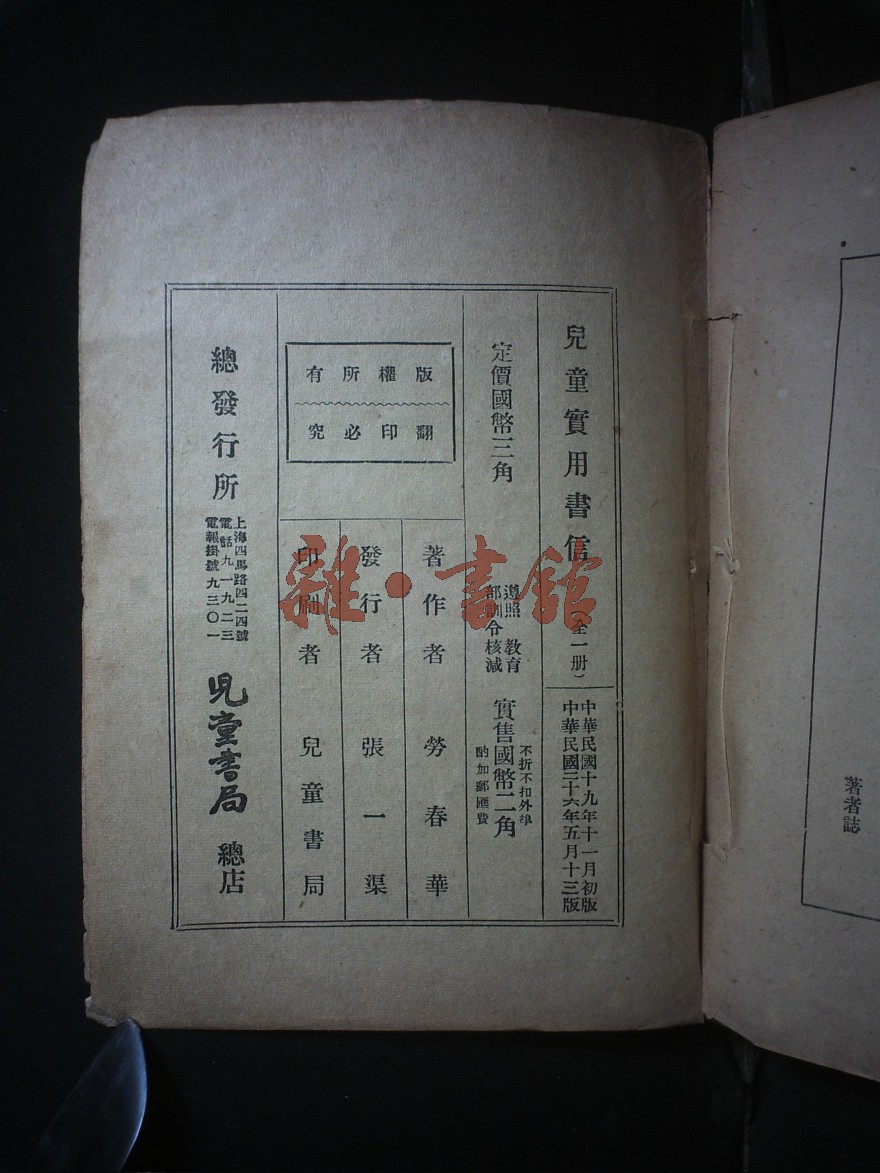 兒童實用書信(全一册)
中華民國十九年十一月初版
中華民國二十六年五月十三版
定價國幣三角
遵照教育
部訓令核減
實售國幣二角
不折不扣外埠
酌加郵匯費
版權所有
翻印必究
著作者 勞春華
發行者 張一渠
印刷者 兒童書局
總發行所
上海四馬路四二四號
電話九一九二三
電報掛號九三〇一
兒童書局
總店
著者誌
雜·書館